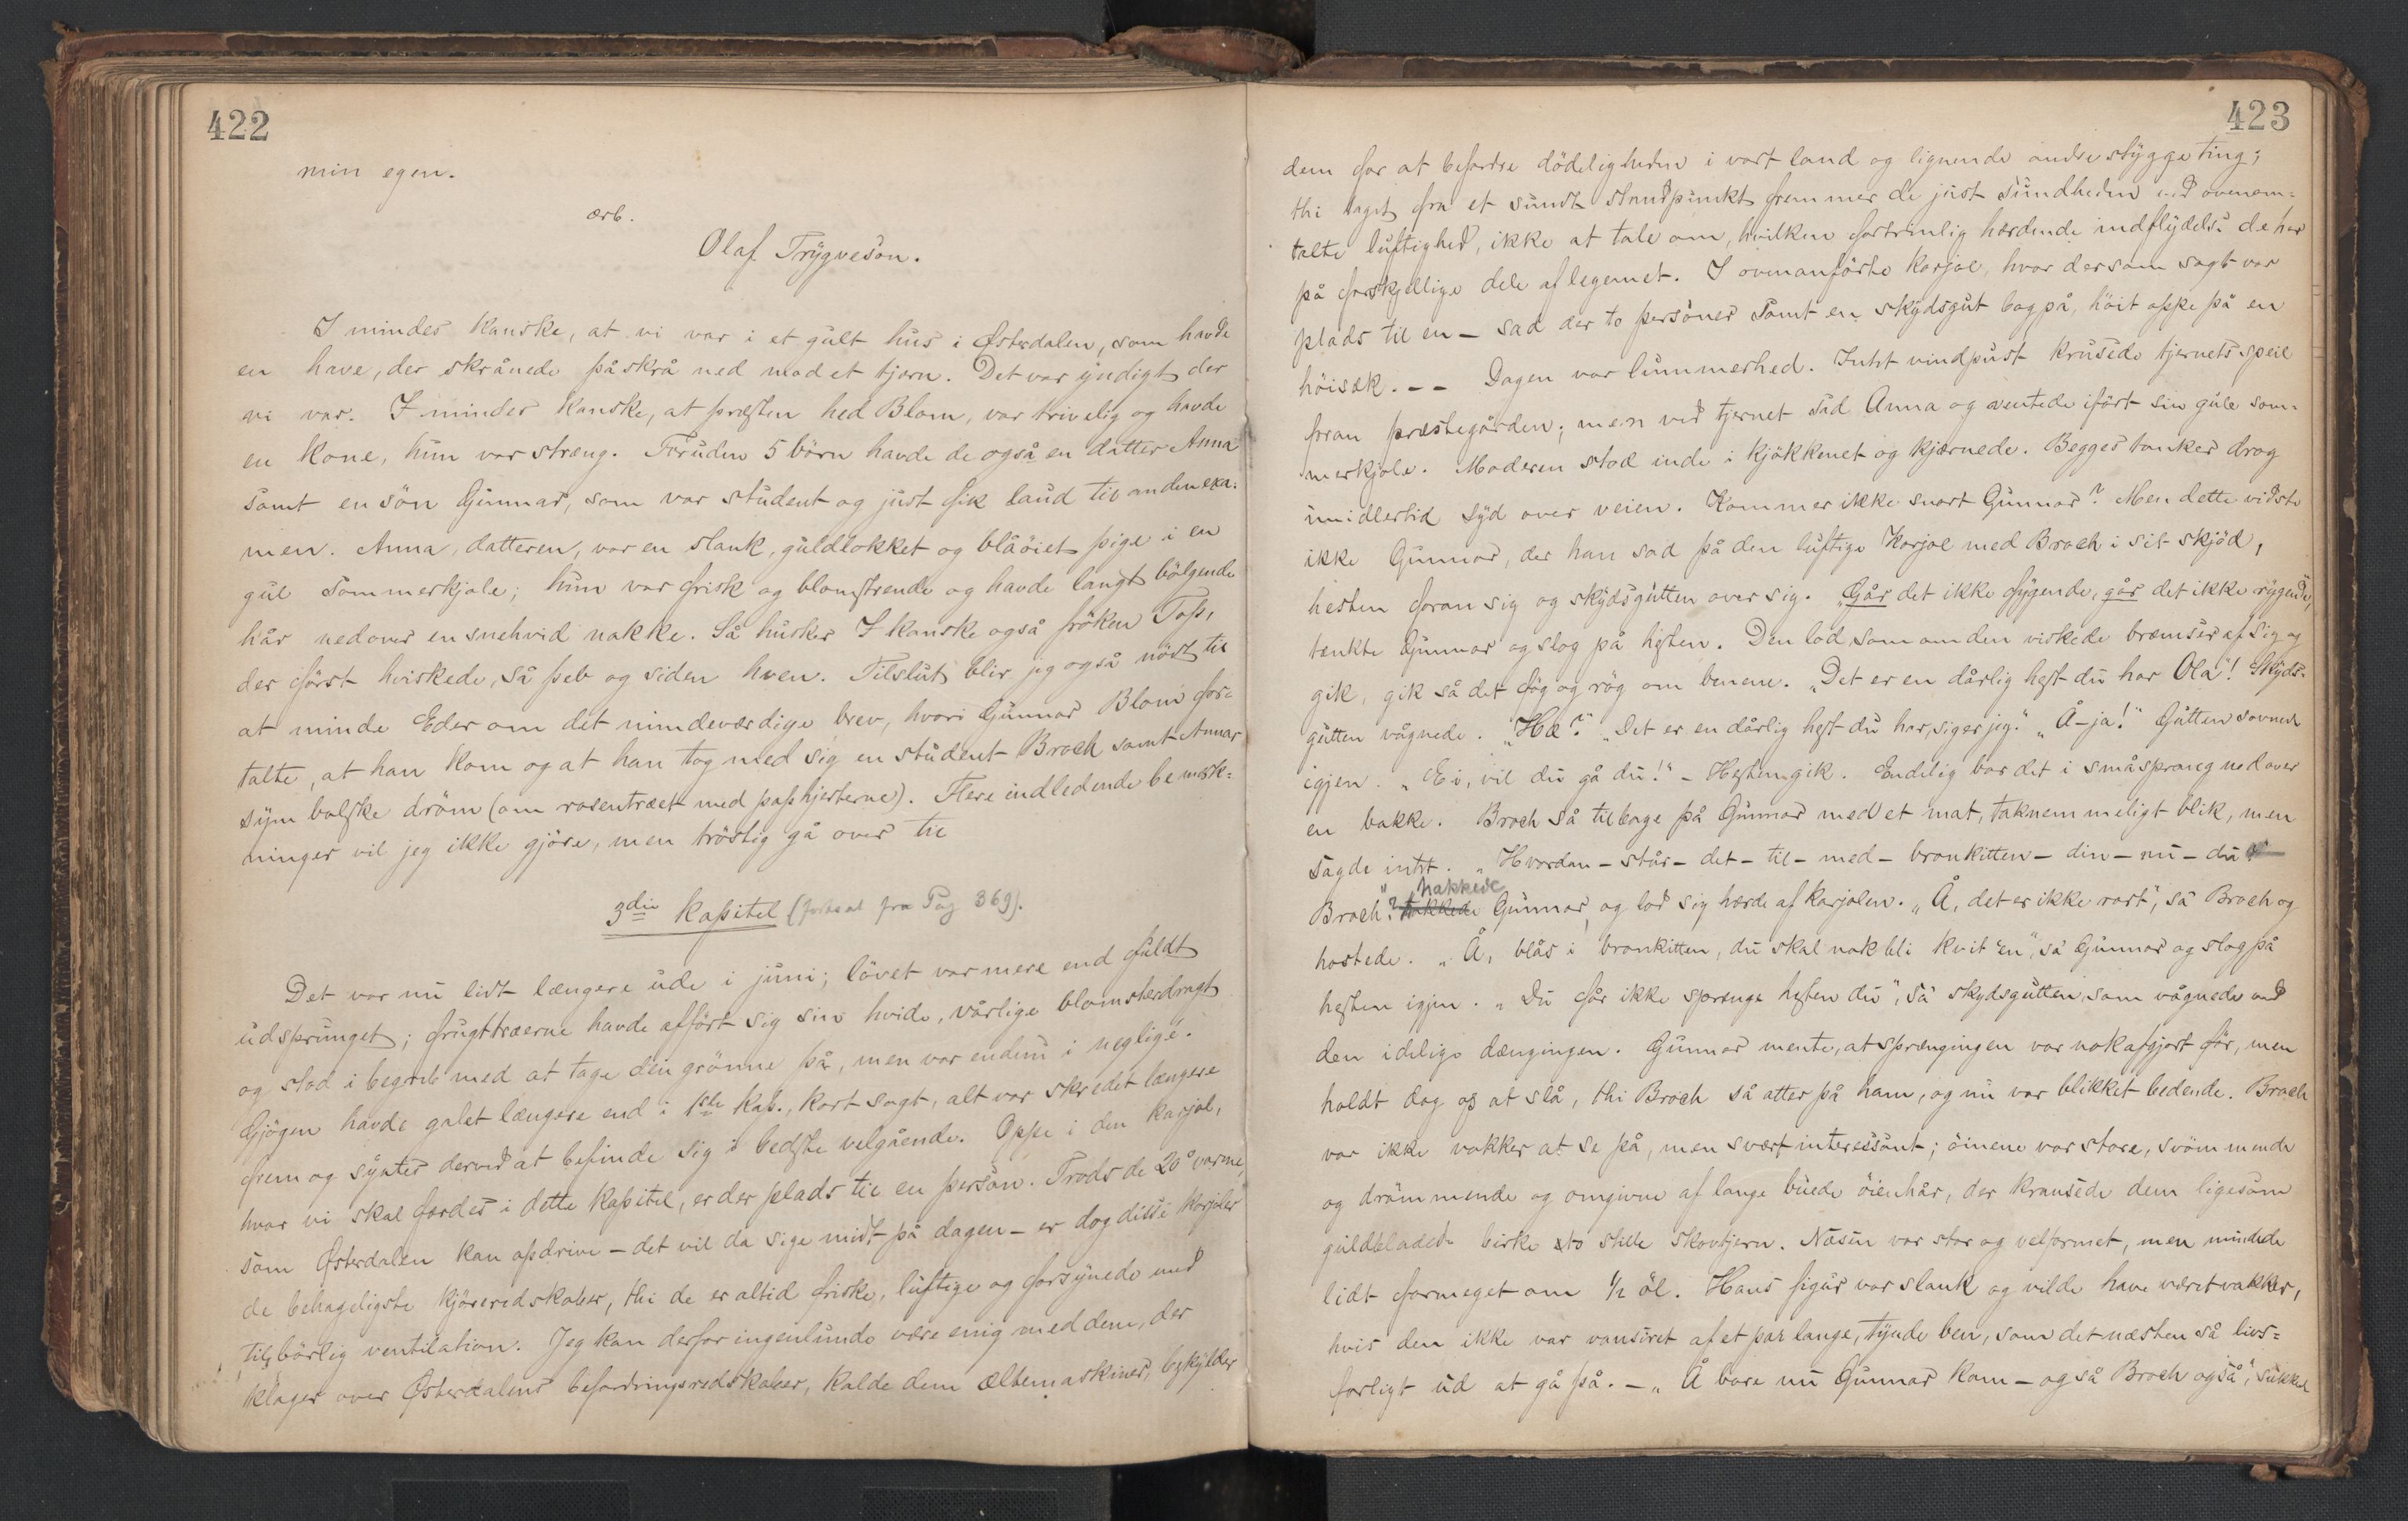 422
min egen.
ærb.
Olaf Trygveson.
I mindes kanske, at vi var i et gult hus i Østerdalen, som havde
en have, der skrånede på skrå ned mod et tjern. Det var yndigt der
vi var. I mindes kanske, at præsten hed Blom, var trivelig og havde
en kone, hun var stræng. Foruden 5 börn havde de også en datter Anna
samt en sön Gunnar, som var student og just fik laud til anden exa-
men. Anna, datteren, var en slank, guldlokket og blåöiet pige i en
gul sommerkjole; hun var frisk og blomstrende og havde langt bölgende
hår nedover en snehvid nakke. Så husker I kanske også fröken Tofs,
der först hviskede, så peb og siden hven. Tilslut blir jeg også nödt til
at minde Eder om det mindeværdige brev, hvori Gunnar Blom for-
talte, at han kom og at han tog med sig en student Broch samt Annas
symbolske dröm (om rosentræet med pafshjerterne). Flere indledende bemærk-
ninger vil jeg ikke gjöre, men tröstig gå over til
3die kapitel (fortsat fra Pag 369).
Det var nu lidt længere ude i juni; lövet var mere end fuldt
udsprunget; frugttræerne havde afført sig sin hvide, vårlige blomsterdragt
og stod i begreb med at tage den grönne på, men var endnu i negligé.
Gjögen havde galet længere end i 1ste kap., kort sagt, alt var skredet længere
frem og syntes derved at befinde sig i bedste velgående. Oppe i den karjol,
hvor vi skal færdes i dette kapitel, er der plads til en person. Trods de 20° varme,
som Østerdalen kan opdrive – det vil da sige midt på dagen – er dog disse karjoler
de behageligste kjöreredskaber, thi de er altid friske, luftige og forsynede med
tilbörlig ventilation. Jeg kan derfor ingenlunde være enig med dem, der
klager over Østerdalens befordringsredskaber, kalde dem æltemaskiner, beskylder
423
dem for at befordre dödeligheden i vort land og lignende andre stygge ting;
thi taget fra et sundt standpunkt fremmer de just sundheden ved ovenom-
talte luftighed, ikke at tale om, hvilken fortrinlig hærdende indflydelse de har
på forskjellige dele af legemet. I ovenanförte karjol, hvor der som sagt var
plads til en – sad der to personer samt en skydsgut bagpå, höit oppe på en
höisæk. – – Dagen var lummerhed. Intet vindpust krusede tjernets speil
foran præstegården; men ved tjernet sad Anna og ventede ifört sin gule som-
merkjole. Moderen stod inde i kjökkenet og kjærnede. Begges tanker drog
imidlertid syd over veien. Kommer ikke snart Gunnar? Men dette vidste
ikke Gunnar, der han sad på den luftige karjol med Broch i sit skjöd,
hesten foran sig og skydsgutten over sig. „Går det ikke fygende, går det ikke rygende,
tænkte Gunnar og slog på hesten. Den lod, som om den viskede bræmser af sig og
gik, gik så det fög og rög om benene. „Det er en dårlig hest du har Ola“! Skyds-
gutten vågnede. „Hæ?“ „Det er en dårlig hest du har, siger jeg.“ „Å – ja!“ Gutten sovnede
igjen. „Ei, vil du gå du!“ – Hesten gik. Endelig bar det i småsprang nedover
en bakke. Broch så tilbage på Gunnar med et mat, taknemmeligt blik, men
sagde intet. „Hvordan – står – det – til – med – bronkitten – din – nu – du
Broch“? hakkede Gunnar, og lod sig hærde af karjolen. „Å, det er ikke rart“, sa Broch og
hostede. „Å, blås i bronkitten, du skal nok bli kvit 'en“, sa Gunnar og slog på
hesten igjen. „Du får ikke sprænge hesten du“, sa skydsgutten, som vågnede ved
den idelige dængingen. Gunnar mente, at sprængingen var nok afgjort för, men
holdt dog op at slå, thi Broch så atter på ham, og nu var blikket bedende. Broch
var ikke vakker at se på, men svært interessant; öinene var store, svömmende
og drömmende og omgivne af lange buede öienhår, der kransede dem ligesom
guldbladede birke to stille skovtjern. Næsen var stor og velformet, men mindede
lidt formeget om 1/2 öl. Hans figur var slank og vilde have været vakker,
hvis den ikke var vansiret af et par lange, tynde ben, som det næsten så livs-
farligt ud at gå på. – „Å bare nu Gunnar kom – og så Broch også“, sukked